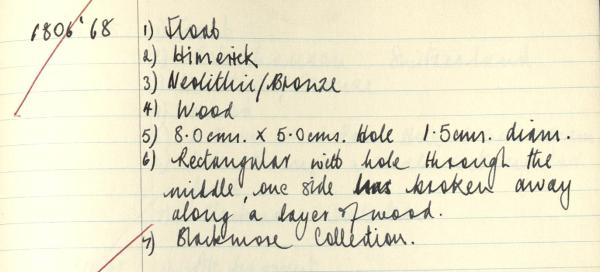 6806'68 1) Float
2) Himerick
3) Neolithic/Bronze
4) Wood
5) 8.0cms. x 5.0cms. Hole 1.5cms. diam.
6) Rectangular with hole through the
middle, one side has broken away
along a layer of wood.
7) Blackmore Collection.